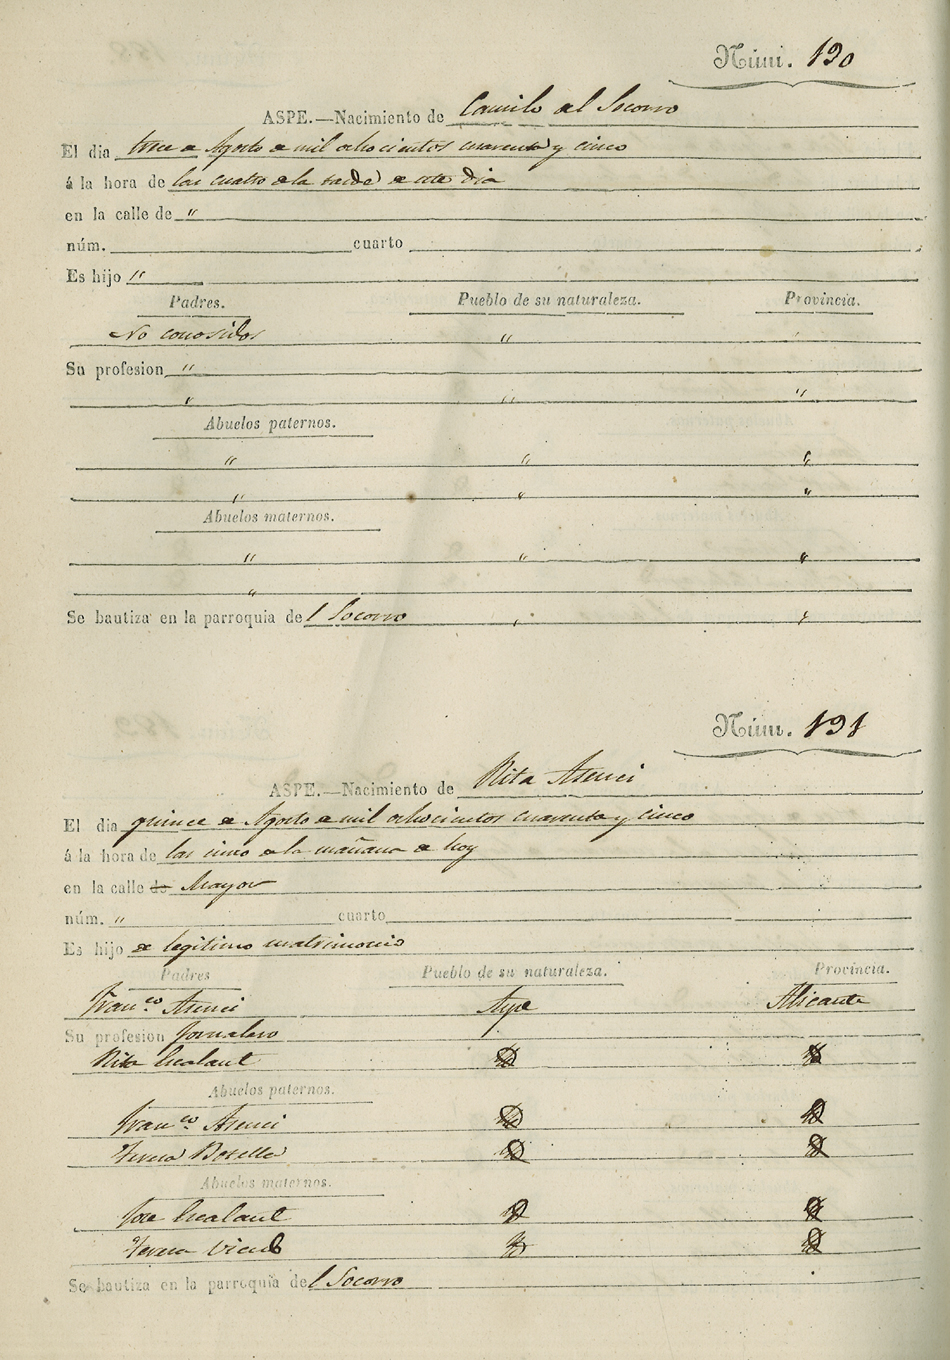 Núm. 190
ASPE.—Nacimiento de Camilo del Socorro
El dia trece de Agosto de mil ochocientos cuarenta y cinco
á la hora de las cuatro de la tarde de este dia
en la calle de "
núm. cuarto
Es hijo "
Padres. Pueblo de su naturaleza. Provincia.
No conosidos " "
Su profesion "
" " "
Abuelos paternos.
" " "
" " "
Abuelos maternos.
" " "
"
Se bautiza en la parroquia del Socorro " "
Núm. 191
ASPE.—Nacimiento de Rita Asenci
El dia quince de Agosto de mil ochocientos cuarenta y cinco
á la hora de las cinco de la mañana de hoy
en la calle de Mayor
núm. " cuarto
Es hijo de legitimo matrimonio
Padres Pueblo de su naturaleza. Provincia.
Franco. Asenci Aspe Alicante
Su profesion Jornalero
Rita Escalant
Abuelos paternos.
Franco. Asenci
Teresa Botella
Abuelos maternos.
Jose Escalant
Teresa
Se bautiza en la parroquia del Socorro